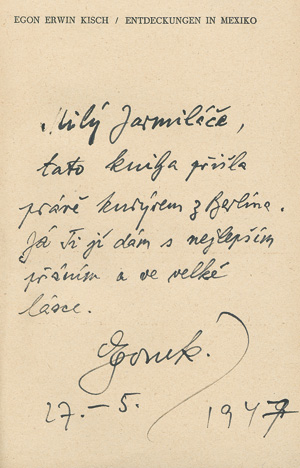 EGON ERWIN KISCH / ENTDECKUNGEN IN MEXIKO
Milý Jarmiláče,
tato kniha přišla
právě kurýrem z Berlína.
Já Ti jí dám s nejlepším
přáním a ve velké
lásce.
Egonek.
27. – 5. 1947